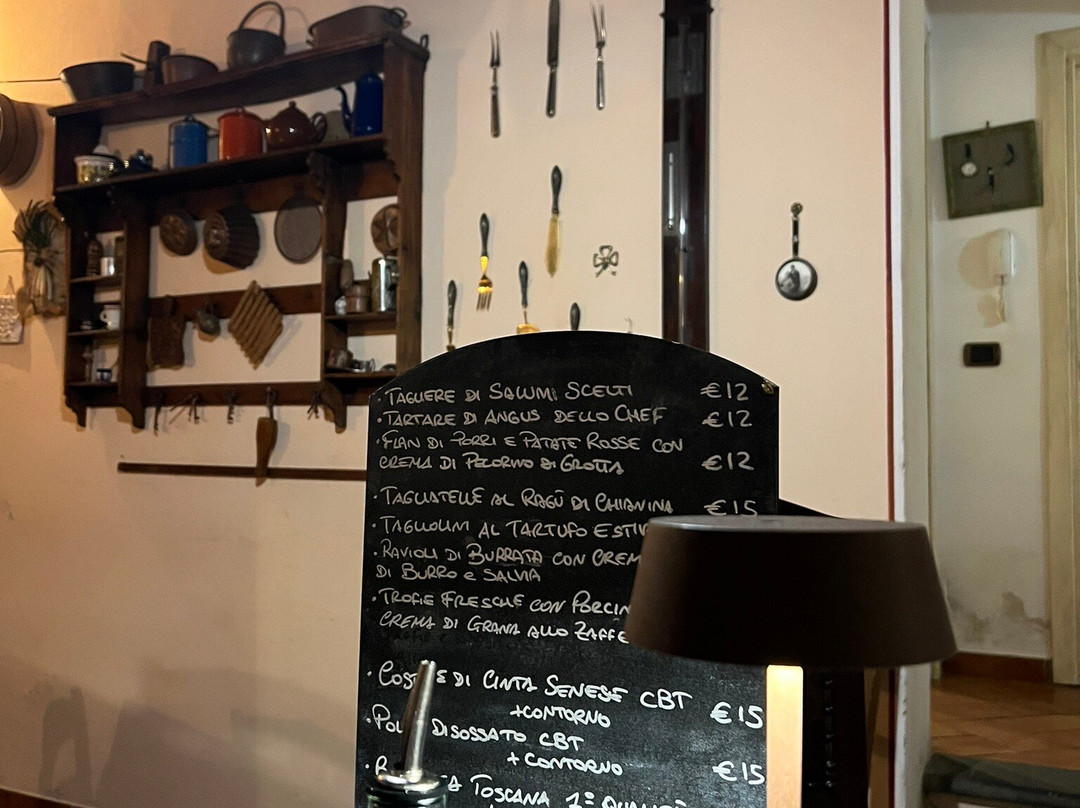 · TAGLIERE DI SALUMI SCELTI €12
· TARTARE DI ANGUS DELLO CHEF €12
· FLAN DI PORRI E PATATE ROSSE CON
CREMA DI PECORINO DI GROTTA €12
· TAGLIATELLE AL RAGÙ DI CHIANINA €15
· TAGLIOLINI AL TARTUFO
· RAVIOLI DI BURRATA CON
DI BURRO E SALVIA
· TROFIE FRESCHE CON
CREMA DI GRANA ALLO
· DI CINTA SENESE CBT €15
+CONTORNO
· DISOSSATO CBT
+CONTORNO €15
· TOSCANA 1° QUALITÀ